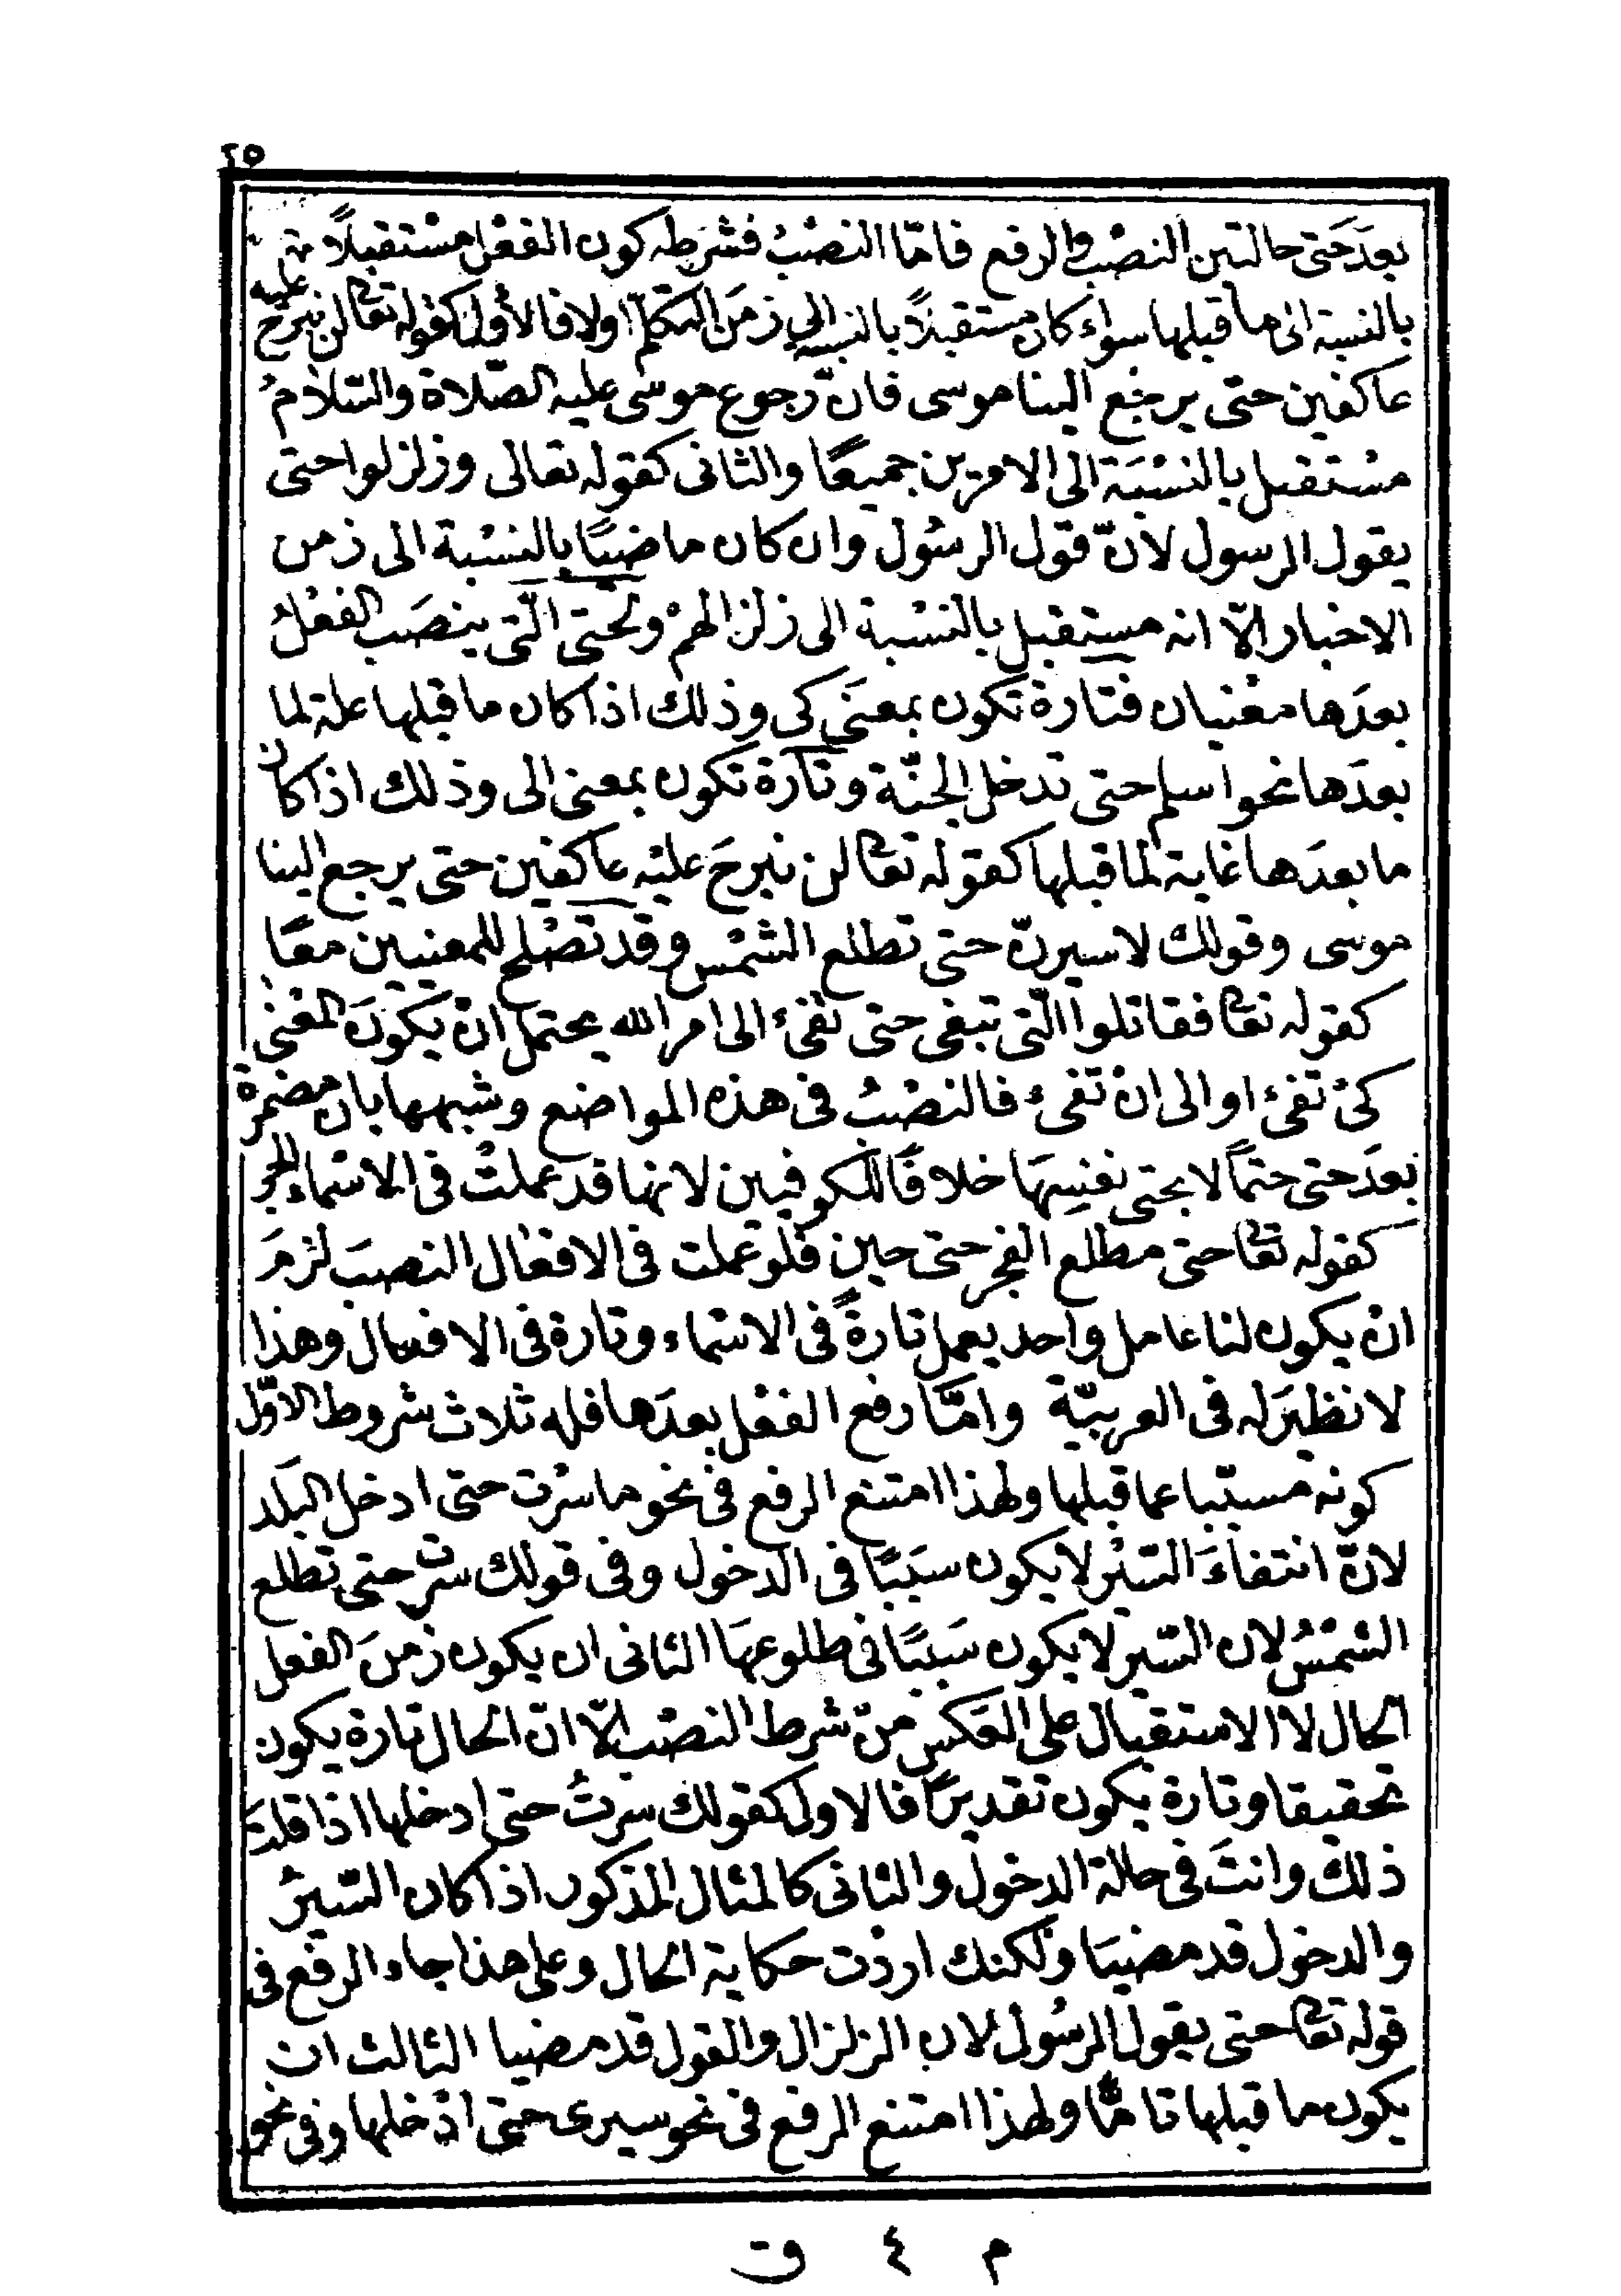 ٢٥
بعدَ حَتى حالتين النصْبُ والرفع فامّا النصْبُ فشرَطه كون الفعْل مسْتقبلاً
بالنسبة الى ما قبلها سواء كان مستقبلاً بالنسبة الى زمَن التكلم اولا فالأول كقوله تعا لن نبرح عليه
عاكفين حتى يرجع الينا موسى فانّ رجوع موسى عليه الصّلاة والسّلامُ
مسْتقبل بالنسْبَة الى الامرين جميعًا والثانى كقوله تعالى وزلزلوا حتى
يقول الرسول لانّ قول الرسُول وان كان ماضيًا بالنسْبة الى زمن
الاخبار الّا انه مستقبل بالنسْبة الى زلزالهمْ ولحتى الّتى ينصَب الفعْلُ
بعدَها معْنيان فتارة تكون بمعنَى كى وذلك اذا كان ما قبلها علة لما
بعدَها نحو اسلم حتى تدخل الجنّة وتارة تكون بمعنى الى وذلك اذا كان
ما بعدَها غاية لما قبلها كقوله تعا لن نبرحَ عليْه عاكفين حتى يرجع الينا
موسى وقولك لاسيرنّ حتى تطلع الشمْس وقد تصْلح للمعنيين معًا
كقوله تعا فقاتلوا الّتى تبغى حتى تفىء الى امر الله يحتمل انْ يكونَ المعْنى
كىْ تفىءَ او الى انْ تفىءَ فالنصْبُ فى هذه المواضع وشبهها بان مضمرة
بعدَ حتى حتمًا لا بحتى نفسِهَا خلافًا للكوفيين لانها قد عملتْ فى الاسْماء الجر
كقوله تعا حتى مطلع الفجر حتى حين فلو عملت فى الافعال النصبَ لزمَ
انْ يكون لنا عامل واحد يعمل تارةً فى الاسْماء وتارة فى الافعال وهذا
لا نظيرَ له فى العربيّة وامّا رفع الفعْل بعدَها فله ثلاث شروط الاوّل
كونه مسبّبا عما قبلها ولهذا امتنع الرفع فى نحو ما سرْت حتى ادخل البَلد
لانّ انتفاءَ السّيْر لا يكون سَبَبًا فى الدخول وفى قولك سرْت حتى تطلع
الشمْسُ لان السّير لا يكون سَببًا فى طلوعهَا الثانى ان يكون زمنَ الفعل
الحال لا الاستقبال على العَكس منْ شرط النصْب الّا انّ الحال تارة يكون
تحقيقا وتارة يكون تقديرًا فالاول كقولك سرتُ حتى ادخلها اذا قلتَ
ذلك وانتَ فى حالة الدخول والثانى كالمثال المذكور اذا كان السّيرُ
والدخول قد مضيَا ولكنك اردْت حكاية الحال وعلى هذا جاء الرفع فى
قوله تعا حتى يقول الرسُول لان الزلزال والقول قد مضيا الثالث ان
يكون ما قبلها تامّا ولهذا امتنع الرفع فى نحو سيرى حتى ادْخلها وفى نحو
م ٤ ق